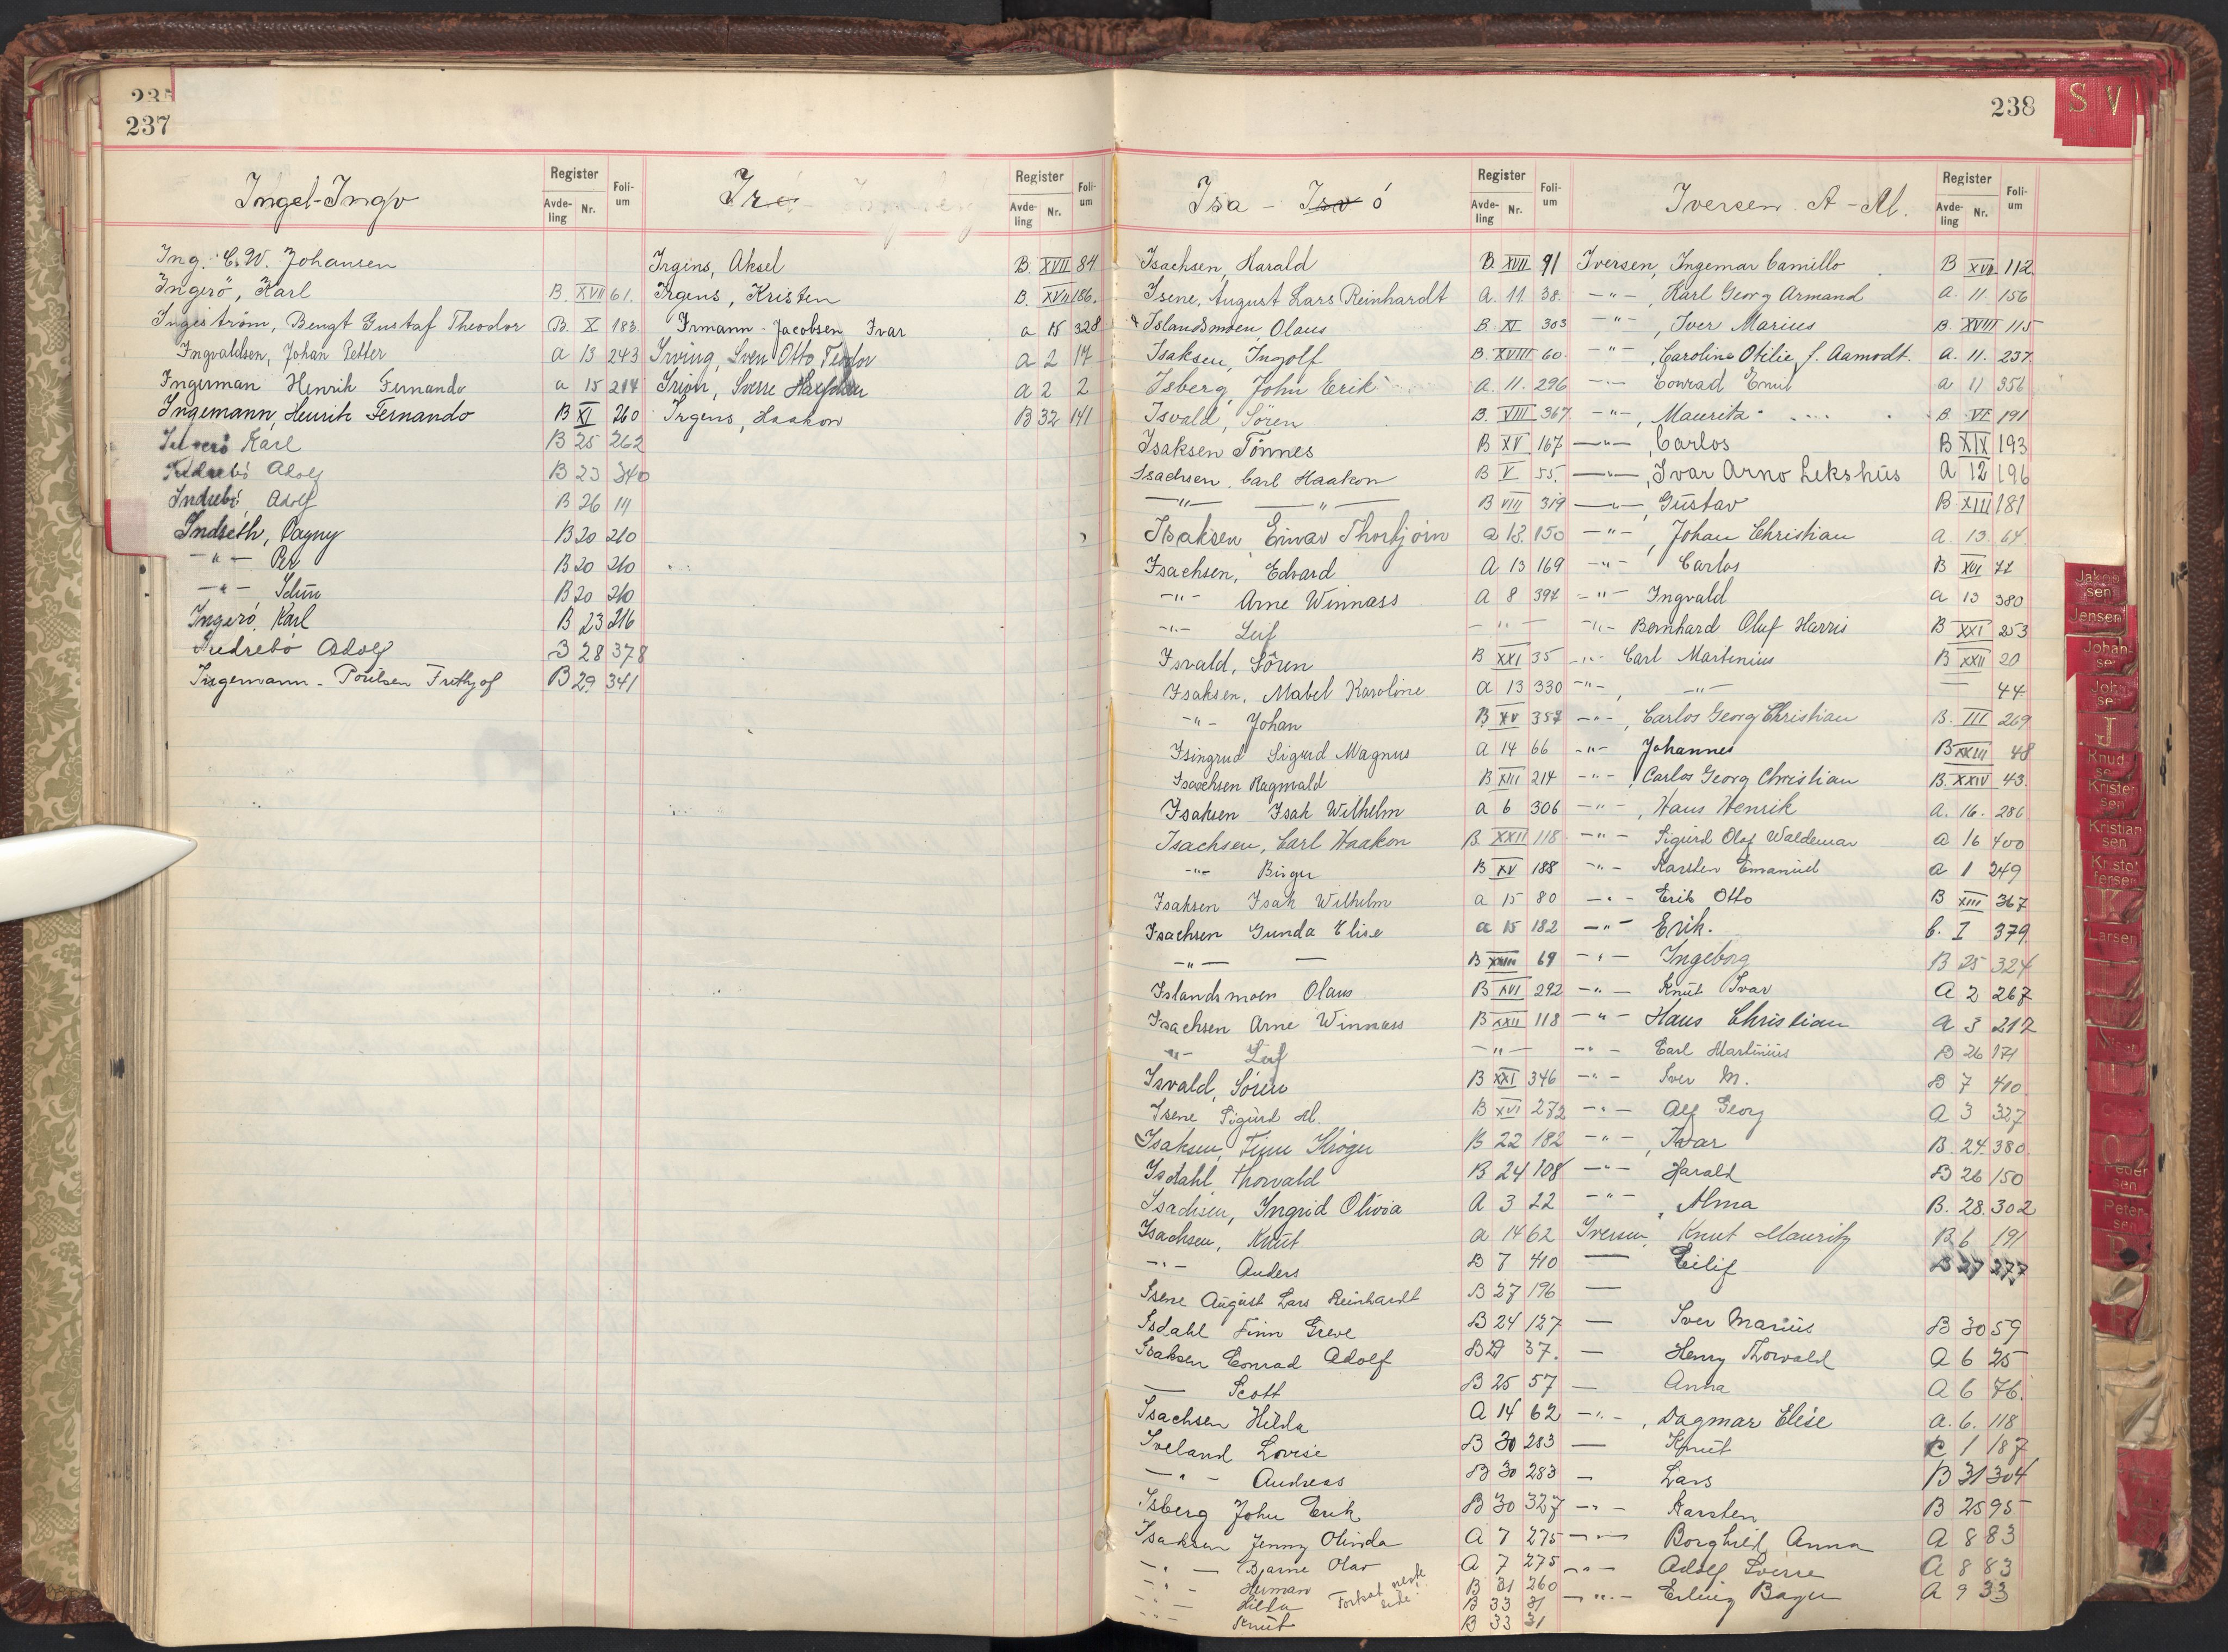 237
Ingel-Ingv
Register
Avde-ling Nr.
Foli-um
Ing. C.W. Johansen
Ingerö, Karl B. XVII 61.
Ingeström, Bengt Gustaf Theodor B. X 183.
Ingvaldsen, Johan Petter a 13 243
Ingerman Henrik Fernando a 15 214
Ingemann, Henrik Fernando B XI 260
Karl B 25 262
Indrebö Adolf B 23 340
Indrebö, Adolf B 26 111
Indseth, Dagny B 20 210
-"- Per B 20 210
-"- B 20 210
Ingerö, Karl B 23 216
Indrebö Adolf B 28 378
Ingemann-Poulsen Frithjof B 29 341
Register
Avde-ling Nr.
Foli-um
Irgens, Aksel B. XVII 84
Irgens, Kristen B. XVII 186.
Irmann-Jacobsen Ivar a 15 328
Irving, Sven Otto Teodor a 2 17
Sverre a 2 2
Irgens, Haakon B 32 141
238
S V
Isa - Isv ö
Register
Avde-ling Nr.
Foli-um
Isachsen, Harald B. XVII 91
Isene, August Lars Reinhardt A. 11. 38.
Islandsmoen Olaus B. XI 303
Isaksen, Ingolf B. XVIII 60.
Isberg, John Erik A. 11. 296
Isvald, Sören B. VIII 367
Isaksen Tönnes B XV 167
Isachsen, Carl Haakon B V 55.
-"- -"- B VIII 319
Isaksen Einar Thorbjörn a 13. 150
Isachsen, Edvard A 13 169
-"- Arne Winnass A 8 397
-"- Leif -"-
Isvald, Sören B XXI 35
Isaksen, Mabel Karoline a 13 330
-"- Johan B XV 357
Isingrud Sigurd Magnus a 14 66
Isachsen Ragnvald B XIII 214
Isaksen Isak Wilhelm a 6 306
Isachsen, Carl Haakon B. XXII 118
-"- Birger B XV 188
Isaksen Isak Wilhelm a 15 80
Isachsen Gunda Elise a 15 182
-"- — B 69
Islandsmoen Olaus B XVI 292
Isachsen Arne Winnass B XXII 118
-"- Leif -"-
Isvald, Sören B XXI 346
Isene Sigurd M. B XVI 272
Isaksen, Finn Kröger B 22 182
Isdahl Thorvald B 24 108
Isachsen, Ingrid Olivia A 3 22
Isachsen, Knut a 14 62
-"- Anders B 7 410
Isene August Lars Reinhardt B 27 196
Isdahl Finn Greve B 24 127
Isaksen Conrad Adolf B 29 37.
— Scott B 25 57
Isachsen Hilda A 14 62
Iveland Lovise B 30 283
-"- Andreas B 30 283
Isberg John Erik B 30 327
Isaksen Jenny Olinda A 7 275
-"- Bjarne Olav A 7 275
-"- Herman B 31 260
-"- Hilda B 33 31
-"- Knut B 33 31
Fortsat neste side!
Iversen. A - Al.
Register
Avde-ling Nr.
Foli-um
Iversen, Ingemar Camillo B XVII 112.
-"-, Karl Georg Armand a. 11. 156
-"-, Iver Marius B. XVIII 115
-"-, Caroline Otilie f. Aamodt. A. 11. 237.
-"- Conrad Emil a 11 356
-"-, Mauritz B VI 191
-"-, Carlos B XIX 193
-"-, Ivar Arno Lekshus A 12 196
-"-, Gustav B XIII 181
-"-, Johan Christian A. 13. 64
-"- Carlos B XVI 77
-"- Ingvald a 13 380
-"- Bernhard Oluf Harris B XXI 253
-"- Carl Martinius B XXII 20
-"-, -"- — 44
-"-, Carlos Georg Christian B. III 269
-"- Johannes B XXIII 48
-"-, Carlos Georg Christian B. XXIV 43.
-"-, Hans Henrik A. 16. 286
-"- Sigurd Olaf Waldemar a 16 400
-"- Karsten Emanuel a 1 249
-"- Erik Otto B XIII 367
-"- Erik. b. I 379
-"- Ingeborg B 25 324
-"- Knut Ivar A 2 267
-"- Hans Christian A 3 212
-"- Carl Martinius B 26 171
-"- Iver M. B 7 410.
-"- Alf Georg A 3 327
-"-, Ivar B. 24. 380
-"- Harald B 26 150
-"-, Alma B. 28. 302
Iversen, Knut Mauritz B 6 191
— Eilif B 27 277
—
— Iver Marius B 30 59
— Henry Thorvald A 6 25
— Anna A 6 76.
-"-, Dagmar Elise a. 6. 118
— Knut C 1 187
— Lars B 31 304
-"- Karsten B 25 95
-"- Borghild Anna A 8 83
-"- Adolf Sverre A 8 83
-"- Erling Bager A 9 33
Jakob-sen
Jensen
Johan-sen
John-sen
J
Knud-sen
Kristen-sen
Kristian-sen
Kristof-fersen
K
Larsen
Peder-sen
Peter-sen